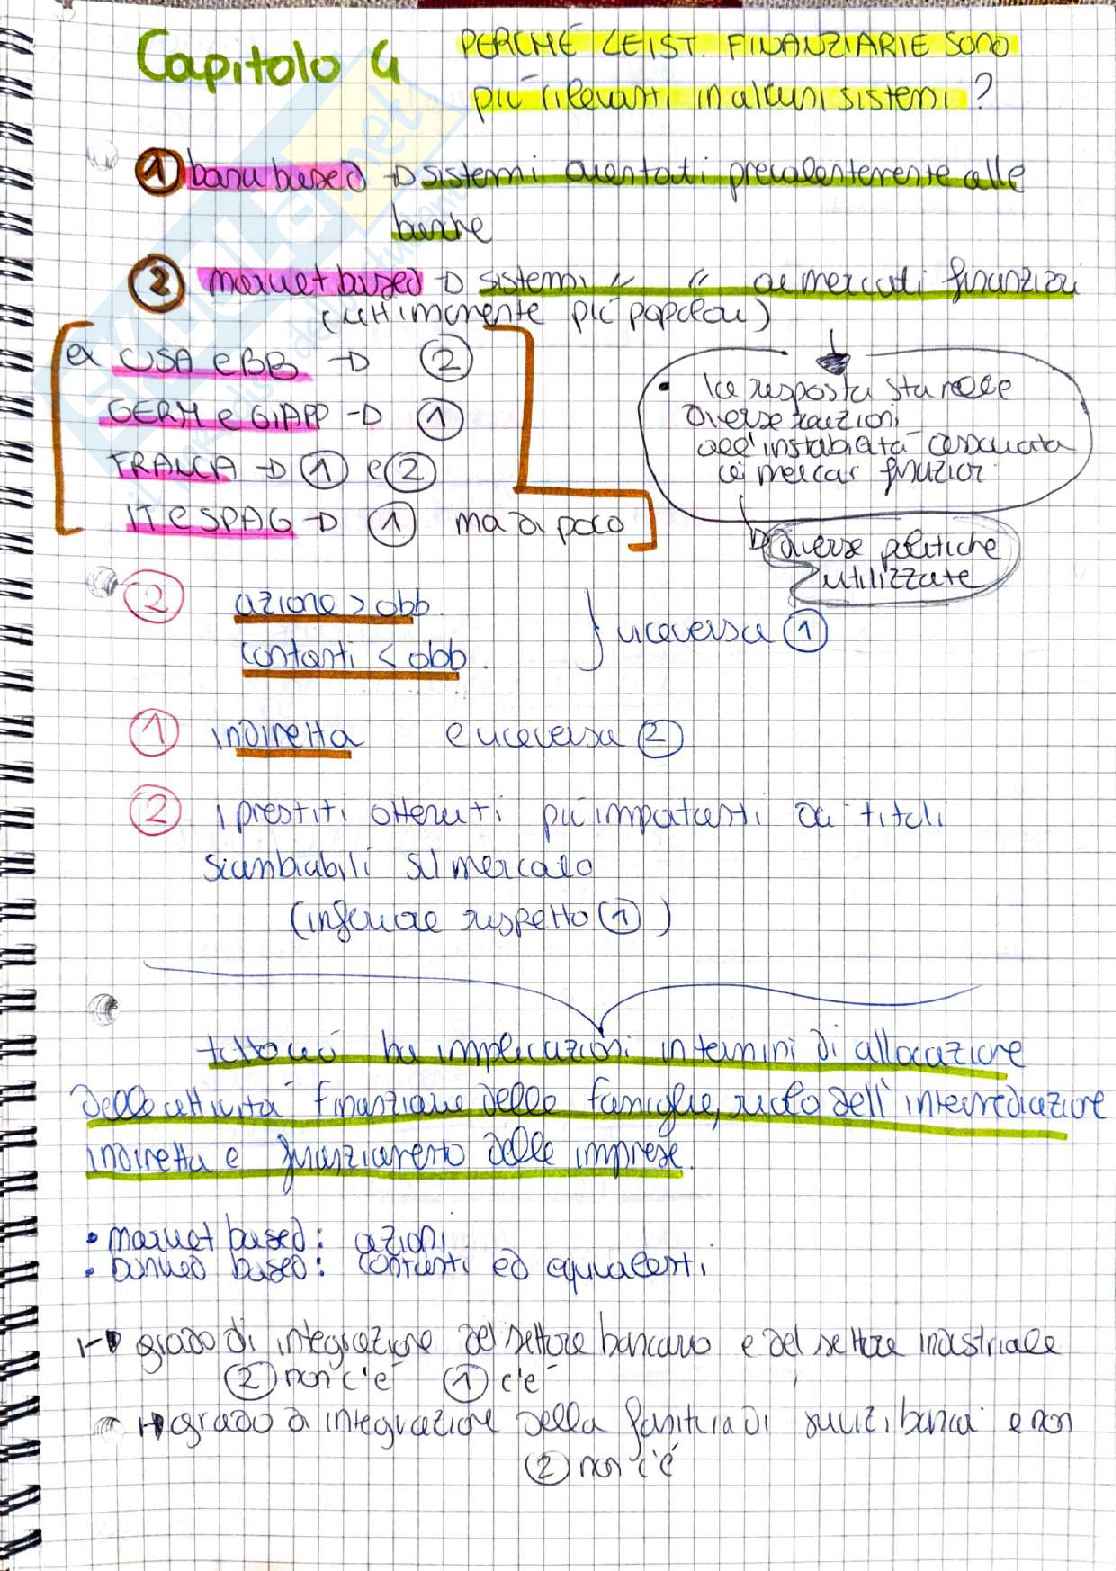 Capitolo 4
PERCHÉ LE IST. FINANZIARIE SONO
più rilevanti in alcuni sistemi?
① bank based → sistemi orientati prevalentemente alle
banche
② market based → sistemi " " ai mercati finanziari
(ultimamente più popolari)
ex USA e GB → ②
GERM e GIAPP → ①
FRANCIA → ① e ②
IT e SPAG → ① ma di poco
• la risposta sta nelle
diverse reazioni
all'instabilità associata
ai mercati finanziari
→ diverse politiche
utilizzate
② azione > obb.
contanti < obb.
} viceversa ①
① indiretta e viceversa ②
② i prestiti ottenuti più importanti da titoli
scambiabili sul mercato
(inferiore rispetto ①)
tutto ciò ha implicazioni in termini di allocazione
delle attività finanziarie delle famiglie, ruolo dell'intermediazione
indiretta e finanziamento delle imprese.
• market based: azioni
• banked based: contanti ed equivalenti
→ grado di integrazione del settore bancario e del settore industriale
② non c'è ① c'è
→ grado di integrazione della fornitura di servizi bancari e non
② non c'è